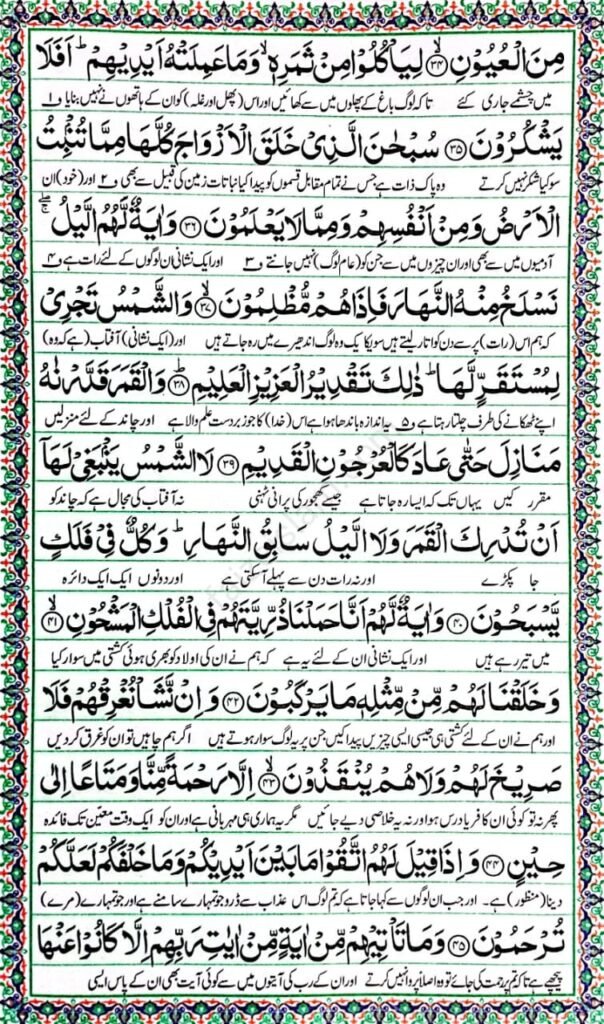 مِنَ الْعُيُوْنِ ۙ﴿۳۴﴾ لِيَاْكُلُوْا مِنْ ثَمَرِهٖ ۙ وَمَا عَمِلَتْهُ اَيْدِيْهِمْ ؕ اَفَلَا
میں چشمے جاری کئے تاکہ لوگ باغ کے پھلوں میں سے کھائیں اور اس (پھل اور غلہ) کو ان کے ہاتھوں نے نہیں بنایا ف۱
يَشْكُرُوْنَ ﴿۳۵﴾ سُبْحٰنَ الَّذِيْ خَلَقَ الْاَزْوَاجَ كُلَّهَا مِمَّا تُنْۢبِتُ
سو کیا شکر نہیں کرتے وہ پاک ذات ہے جس نے تمام مقابل قسموں کو پیدا کیا نباتات زمین کی قبیل سے بھی ف۲ اور (خود) ان
الْاَرْضُ وَمِنْ اَنْفُسِهِمْ وَمِمَّا لَا يَعْلَمُوْنَ ﴿۳۶﴾ وَاٰيَةٌ لَّهُمُ الَّيْلُ ۖۚ
آدمیوں میں سے بھی اور ان چیزوں میں سے جن کو (عام لوگ) نہیں جانتے ف۳ اور ایک نشانی ان لوگوں کے لئے رات ہے ف۴
نَسْلَخُ مِنْهُ النَّهَارَ فَاِذَا هُمْ مُّظْلِمُوْنَ ۙ﴿۳۷﴾ وَالشَّمْسُ تَجْرِيْ
کہ ہم اس (رات) پر سے دن کو اتار لیتے ہیں سو یکایک وہ لوگ اندھیرے میں رہ جاتے ہیں اور (ایک نشانی) آفتاب (ہے کہ وہ)
لِمُسْتَقَرٍّ لَّهَا ؕ ذٰلِكَ تَقْدِيْرُ الْعَزِيْزِ الْعَلِيْمِ ؕ﴿۳۸﴾ وَالْقَمَرَ قَدَّرْنٰهُ
اپنے ٹھکانے کی طرف چلتا رہتا ہے ف۵ یہ اندازہ باندھا ہوا ہے اس (خدا) کا جو زبردست علم والا ہے اور چاند کے لئے منزلیں
مَنَازِلَ حَتّٰى عَادَ كَالْعُرْجُوْنِ الْقَدِيْمِ ﴿۳۹﴾ لَا الشَّمْسُ يَنْۢبَغِيْ لَهَاۤ
مقرر کیں یہاں تک کہ ایسا رہ جاتا ہے جیسے کھجور کی پرانی ٹہنی نہ آفتاب کی مجال ہے کہ چاند کو
اَنْ تُدْرِكَ الْقَمَرَ وَلَا الَّيْلُ سَابِقُ النَّهَارِ ؕ وَكُلٌّ فِيْ فَلَكٍ
جا پکڑے اور نہ رات دن سے پہلے آسکتی ہے اور دونوں ایک ایک دائرہ
يَّسْبَحُوْنَ ﴿۴۰﴾ وَاٰيَةٌ لَّهُمْ اَنَّا حَمَلْنَا ذُرِّيَّتَهُمْ فِي الْفُلْكِ الْمَشْحُوْنِ ۙ﴿۴۱﴾
میں تیر رہے ہیں اور ایک نشانی ان کے لئے یہ ہے کہ ہم نے ان کی اولاد کو بھری ہوئی کشتی میں سوار کیا
وَخَلَقْنَا لَهُمْ مِّنْ مِّثْلِهٖ مَا يَرْكَبُوْنَ ﴿۴۲﴾ وَاِنْ نَّشَاْ نُغْرِقْهُمْ فَلَا
اور ہم نے ان کے لئے کشتی ہی جیسی ایسی چیزیں پیدا کیں جن پر یہ لوگ سوار ہوتے ہیں اگر ہم چاہیں تو ان کو غرق کردیں
صَرِيْخَ لَهُمْ وَلَا هُمْ يُنْقَذُوْنَ ۙ﴿۴۳﴾ اِلَّا رَحْمَةً مِّنَّا وَمَتَاعًا اِلٰى
پھر نہ تو کوئی ان کا فریادرس ہو اور نہ یہ خلاصی دیے جائیں مگر یہ ہماری ہی مہربانی ہے اور ان کو ایک وقت معین تک فائدہ
حِيْنٍ ﴿۴۴﴾ وَاِذَا قِيْلَ لَهُمُ اتَّقُوْا مَا بَيْنَ اَيْدِيْكُمْ وَمَا خَلْفَكُمْ لَعَلَّكُمْ
دینا (منظور) ہے۔ اور جب ان لوگوں سے کہا جاتا ہے کہ تم لوگ اس عذاب سے ڈرو جو تمہارے سامنے ہے اور جو تمہارے (مرے)
تُرْحَمُوْنَ ﴿۴۵﴾ وَمَا تَاْتِيْهِمْ مِّنْ اٰيَةٍ مِّنْ اٰيٰتِ رَبِّهِمْ اِلَّا كَانُوْا عَنْهَا
پیچھے ہے تاکہ تم پر رحمت کی جائے تو وہ اصلاً پروا نہیں کرتے اور ان کے رب کی آیتوں میں سے کوئی آیت بھی ان کے پاس ایسی